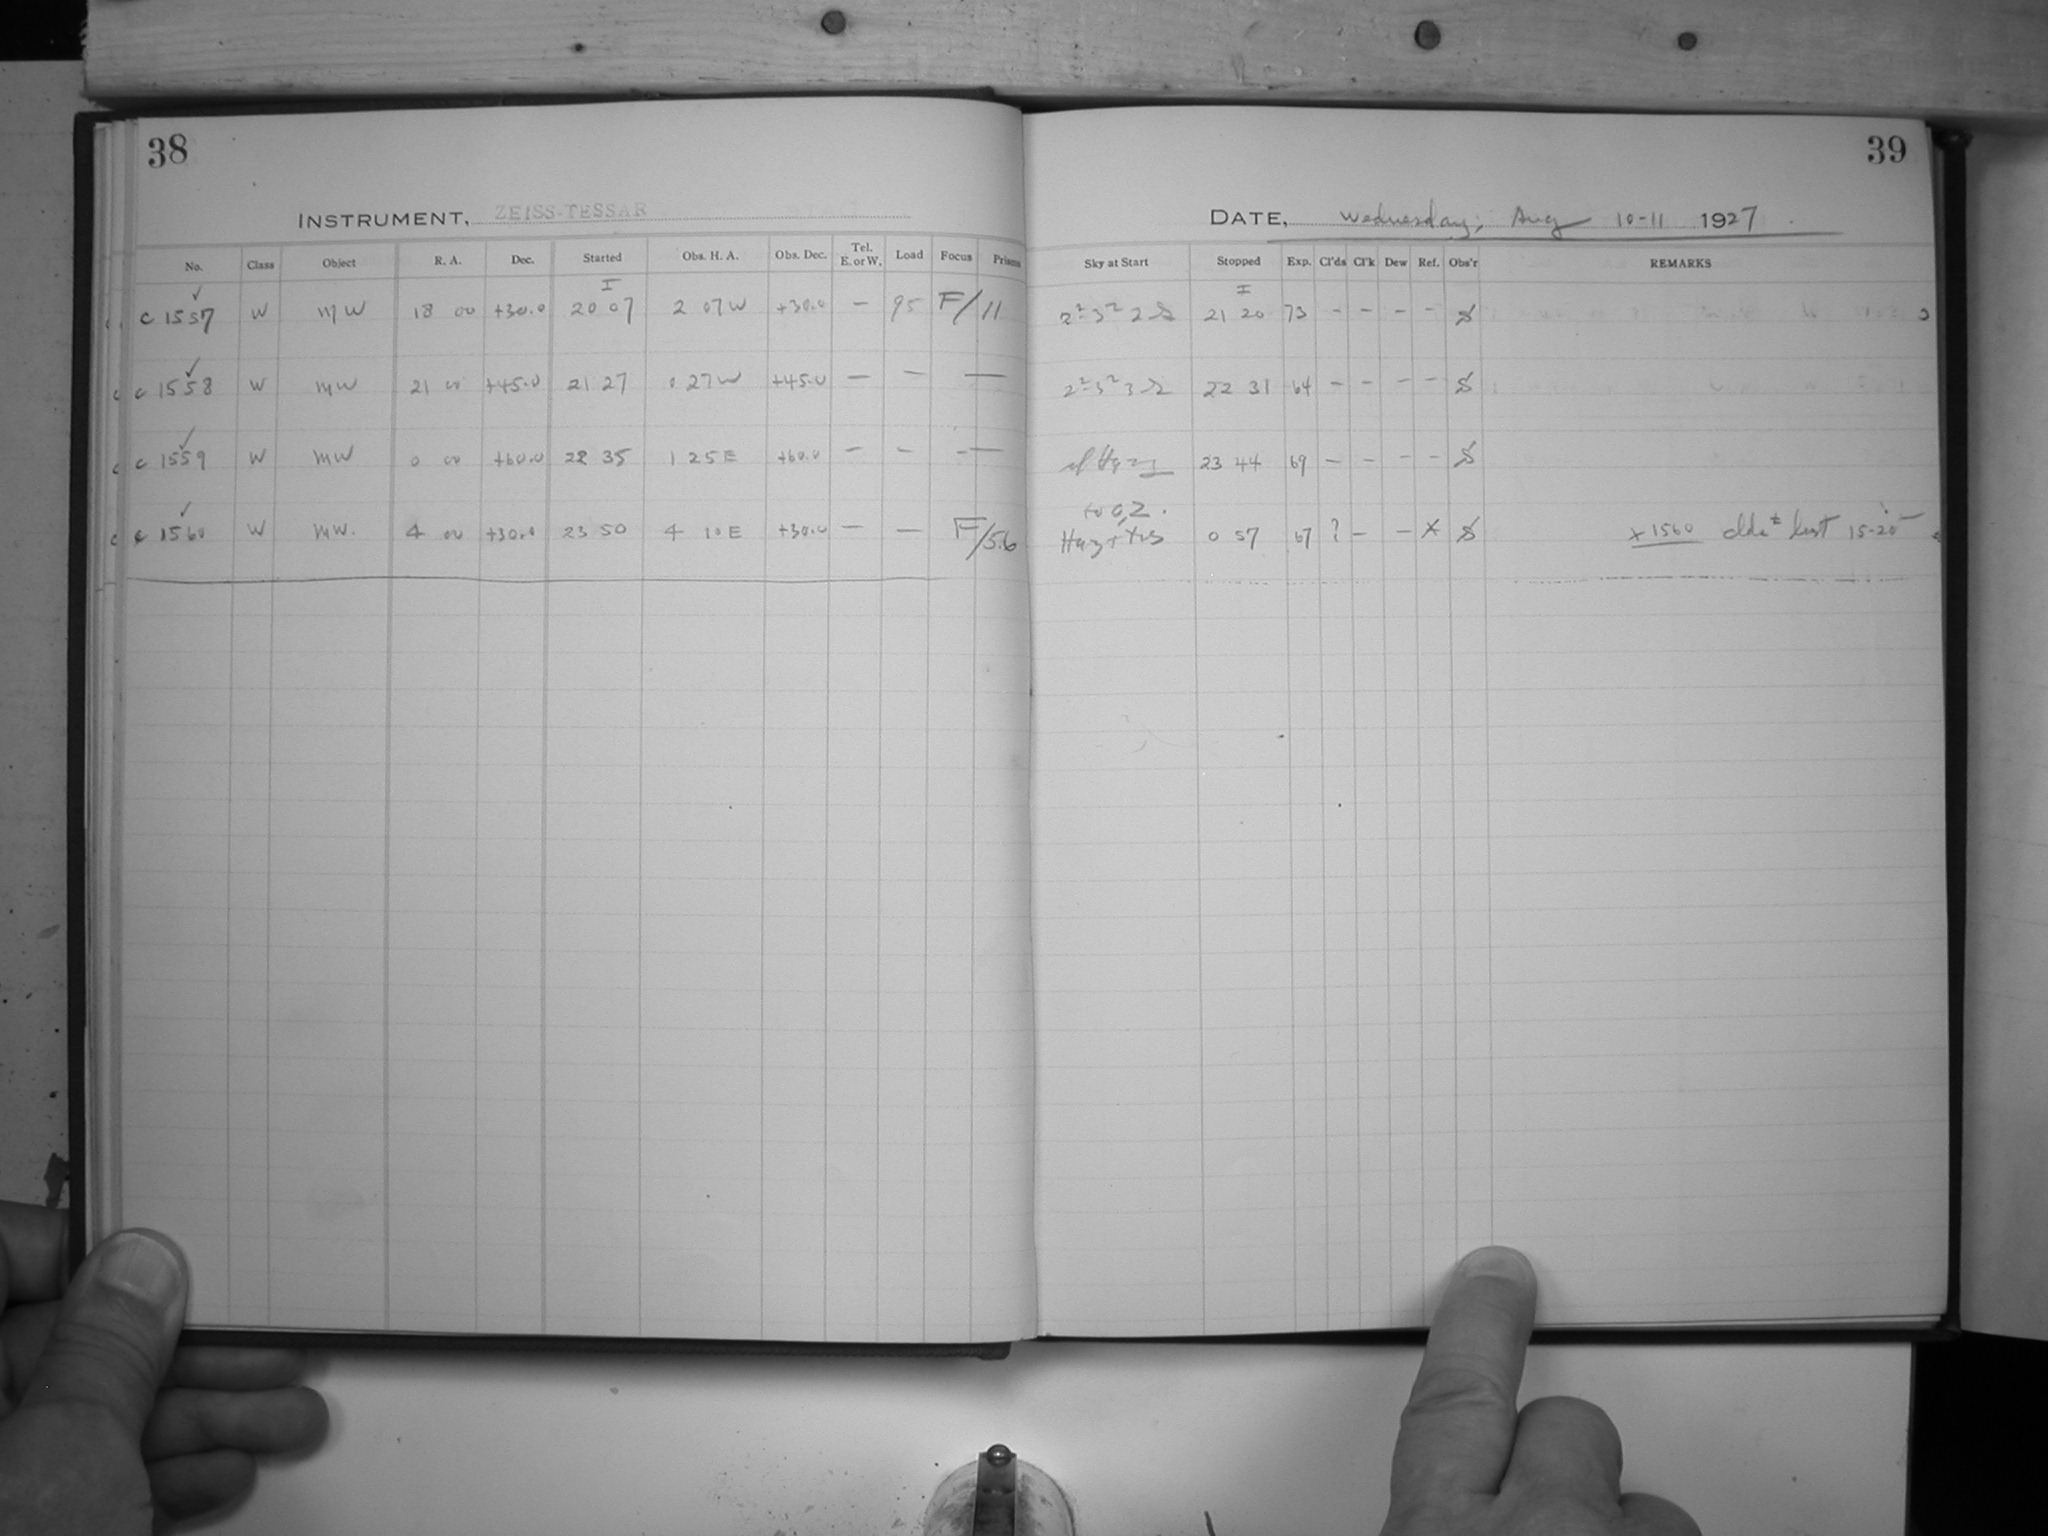 38
INSTRUMENT, ZEISS-TESSAR
No. Class Object R. A. Dec. Started Obs. H. A. Obs. Dec. Tel. E. or W. Load Focus Prisms
I
c 1557 W MW 18 00 +30.0 20 07 2 07 W +30.0 — 95 F/11
c 1558 W MW 21 00 +45.0 21 27 0 27 W +45.0 — — —
c 1559 W MW 0 00 +60.0 22 35 1 25 E +60.0 — — —
c 1560 W MW. 4 00 +30.0 23 50 4 10 E +30.0 — — F/5.6
39
DATE, Wednesday, Aug 10-11 1927
Sky at Start Stopped Exp. Cl'ds Cl'k Dew Ref. Obs'r REMARKS
I
21 20 73 – – – –
22 31 64 – – – –
23 44 69 – – – –
0 57 67 ? – – x x 1560 15-20